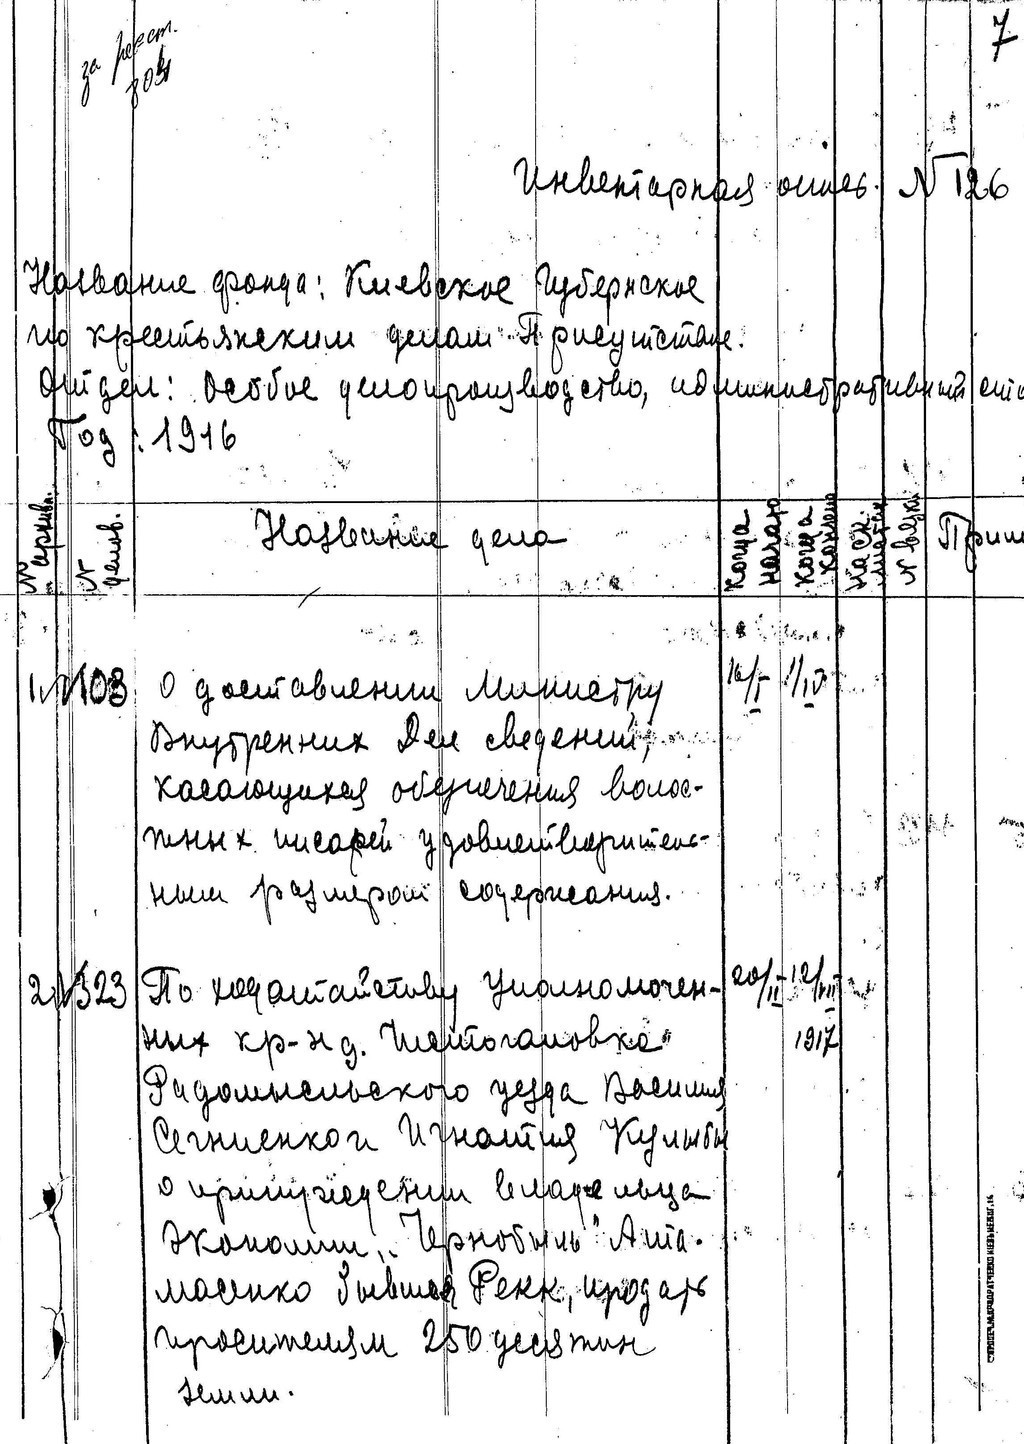 за реест.
7
Инвентарная опись. № 126
Название фонда: Киевское Губернское
по крестьянским делам Присутствие.
Отдел: Особое делопроизводство, административный сто
Год: 1916
№ архивн.
№ делов.
Название дела
когда начато
когда кончено
№ вязки
Прим
1. № 103 О доставлении Министру 16/I 1/IV
Внутренних Дел сведений,
касающихся обезпечения волос-
тных писарей удовлетворитель-
ным размером содержания.
2. № 323 По ходатайству Уполномочен- 20/II 12/VII
ных кр-н д. Шепогаловка 1917
Радомысльского уезда Василия
Сегниенко и Игнатия Кулыбы
о принуждении владельца
Экономии „Чернобыль" Ата-
масенко бывшей Ренн, продать
просителям 250 десятин
земли.